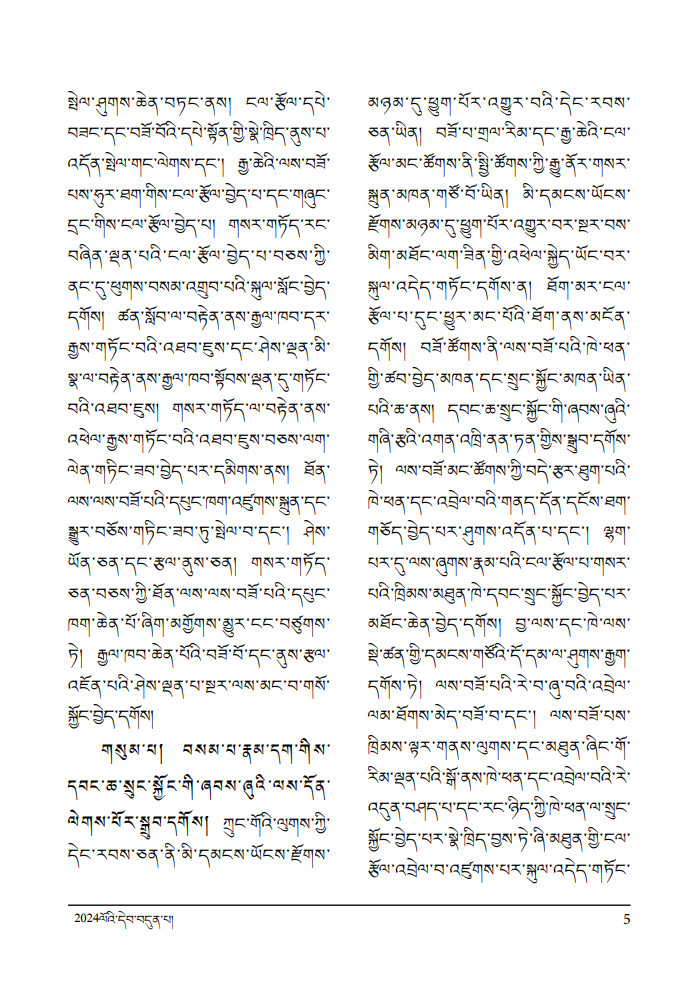 སྤེལ་ཤུགས་ཆེན་བཏང་ནས། ངལ་རྩོལ་དཔེ་
བཟང་དང་བཟོ་བོའི་དཔེ་སྟོན་གྱི་སྣེ་ཁྲིད་ནུས་པ་
འདོན་སྤེལ་གང་ལེགས་དང་། རྒྱ་ཆེའི་ལས་བཟོ་
པས་ཧུར་ཐག་གིས་ངལ་རྩོལ་བྱེད་པ་དང་གཞུང་
དྲང་གིས་ངལ་རྩོལ་བྱེད་པ། གསར་གཏོད་རང་
བཞིན་ལྡན་པའི་ངལ་རྩོལ་བྱེད་པ་བཅས་ཀྱི་
ནང་དུ་ཕུགས་བསམ་འགྲུབ་པའི་སྐུལ་སློང་བྱེད་
དགོས། ཚན་སློབ་ལ་བརྟེན་ནས་རྒྱལ་ཁབ་དར་
རྒྱས་གཏོང་བའི་འཐབ་ཇུས་དང་ཤེས་ལྡན་མི་
སྣ་ལ་བརྟེན་ནས་རྒྱལ་ཁབ་སྟོབས་ལྡན་དུ་གཏོང་
བའི་འཐབ་ཇུས། གསར་གཏོད་ལ་བརྟེན་ནས་
འཕེལ་རྒྱས་གཏོང་བའི་འཐབ་ཇུས་བཅས་ལག་
ལེན་གཏིང་ཟབ་བྱེད་པར་དམིགས་ནས། ཐོན་
ལས་ལས་བཟོ་པའི་དཔུང་ཁག་འཛུགས་སྐྲུན་དང་
སྒྱུར་བཅོས་གཏིང་ཟབ་ཏུ་སྤེལ་བ་དང་། ཤེས་
ཡོན་ཅན་དང་རྩལ་ནུས་ཅན། གསར་གཏོད་
ཅན་བཅས་ཀྱི་ཐོན་ལས་ལས་བཟོ་པའི་དཔུང་
ཁག་ཆེན་པོ་ཞིག་མགྱོགས་མྱུར་ངང་བཙུགས་
ཏེ། རྒྱལ་ཁབ་ཆེན་པོའི་བཟོ་བོ་དང་ནུས་རྩལ་
འཛོན་པའི་ཤེས་ལྡན་པ་སྔར་ལས་མང་བ་གསོ་
སྐྱོང་བྱེད་དགོས།
གསུམ་པ། བསམ་པ་རྣམ་དག་གིས་
དབང་ཆ་སྲུང་སྐྱོང་གི་ཞབས་ཞུའི་ལས་དོན་
ལེགས་པོར་སྒྲུབ་དགོས། ཀྲུང་གོའི་ལུགས་ཀྱི་
དེང་རབས་ཅན་ནི་མི་དམངས་ཡོངས་རྫོགས་
མཉམ་དུ་ཕྱུག་པོར་འགྱུར་བའི་དེང་རབས་
ཅན་ཡིན། བཟོ་པ་གྲལ་རིམ་དང་རྒྱ་ཆེའི་ངལ་
རྩོལ་མང་ཚོགས་ནི་སྤྱི་ཚོགས་ཀྱི་རྒྱུ་ནོར་གསར་
སྐྲུན་མཁན་གཙོ་བོ་ཡིན། མི་དམངས་ཡོངས་
རྫོགས་མཉམ་དུ་ཕྱུག་པོར་འགྱུར་བར་སྔར་བས་
མིག་མཐོང་ལག་ཟིན་གྱི་འཕེལ་སྐྱེད་ཡོང་བར་
སྐུལ་འདེད་གཏོང་དགོས་ན། ཐོག་མར་ངལ་
རྩོལ་པ་དུང་ཕྱུར་མང་པོའི་ཐོག་ནས་མངོན་
དགོས། བཟོ་ཚོགས་ནི་ལས་བཟོ་པའི་ཁེ་ཕན་
གྱི་ཚབ་བྱེད་མཁན་དང་སྲུང་སྐྱོང་མཁན་ཡིན་
པའི་ཆ་ནས། དབང་ཆ་སྲུང་སྐྱོང་གི་ཞབས་ཞུའི་
གཞི་རྩའི་འགན་འཁྲི་ནན་ཏན་གྱིས་སྒྲུབ་དགོས་
ཏེ། ལས་བཟོ་མང་ཚོགས་ཀྱི་བདེ་རྩར་ཐུག་པའི་
ཁེ་ཕན་དང་འབྲེལ་བའི་གནད་དོན་དངོས་ཐག་
གཅོད་བྱེད་པར་ཤུགས་འདོན་པ་དང་། ལྷག་
པར་དུ་ལས་ཞུགས་རྣམ་པའི་ངལ་རྩོལ་པ་གསར་
པའི་ཁྲིམས་མཐུན་ཁེ་དབང་སྲུང་སྐྱོང་བྱེད་པར་
མཐོང་ཆེན་བྱེད་དགོས། བྱ་ལས་དང་ཁེ་ལས་
སྡེ་ཚན་གྱི་དམངས་གཙོའི་དོ་དམ་ལ་ཤུགས་རྒྱག་
དགོས་ཏེ། ལས་བཟོ་པའི་རེ་བ་ཞུ་བའི་འབྲེལ་
ལམ་ཐོགས་མེད་བཟོ་བ་དང་། ལས་བཟོ་པས་
ཁྲིམས་ལྟར་གནས་ལུགས་དང་མཐུན་ཞིང་གོ་
རིམ་ལྡན་པའི་སྒོ་ནས་ཁེ་ཕན་དང་འབྲེལ་བའི་རེ་
འདུན་བཤད་པ་དང་རང་ཉིད་ཀྱི་ཁེ་ཕན་ལ་སྲུང་
སྐྱོང་བྱེད་པར་སྣེ་ཁྲིད་བྱས་ཏེ་ཞི་མཐུན་གྱི་ངལ་
རྩོལ་འབྲེལ་བ་འཛུགས་པར་སྐུལ་འདེད་གཏོང་
2024ལོའི་དེབ་བདུན་པ།
5